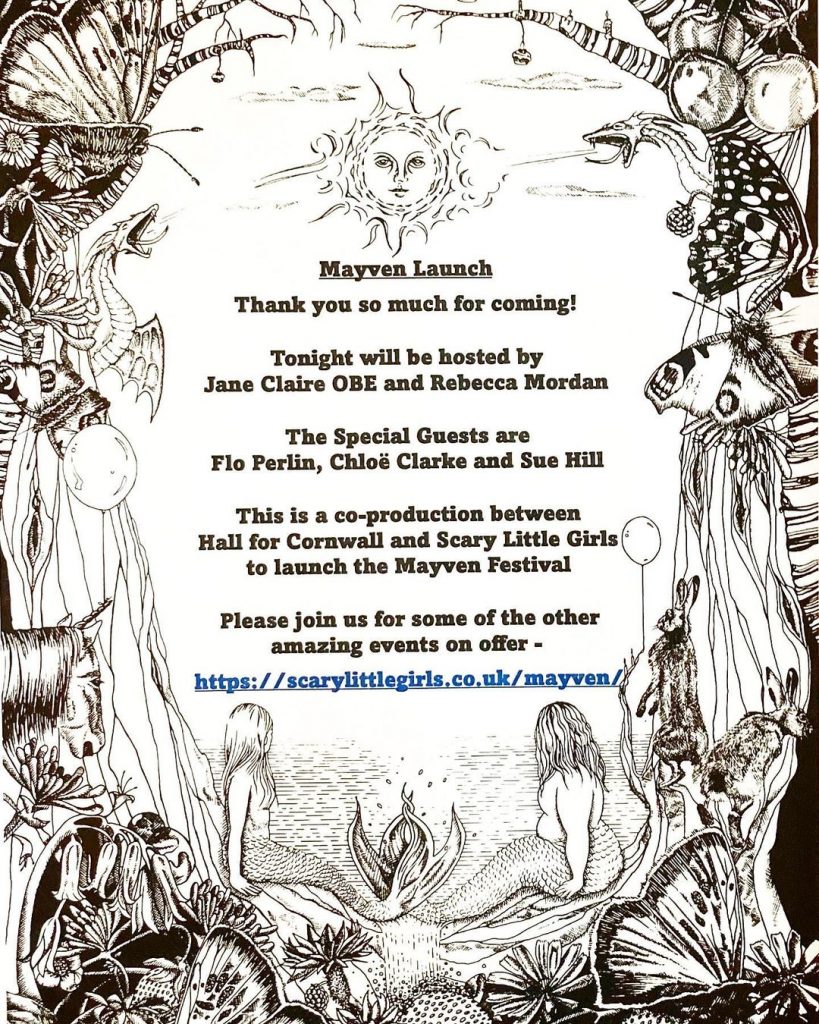 Mayven Launch
Thank you so much for coming!
Tonight will be hosted by
Jane Claire OBE and Rebecca Mordan
The Special Guests are
Flo Perlin, Chloë Clarke and Sue Hill
This is a co-production between
Hall for Cornwall and Scary Little Girls
to launch the Mayven Festival
Please join us for some of the other
amazing events on offer -
https://scarylittlegirls.co.uk/mayven/